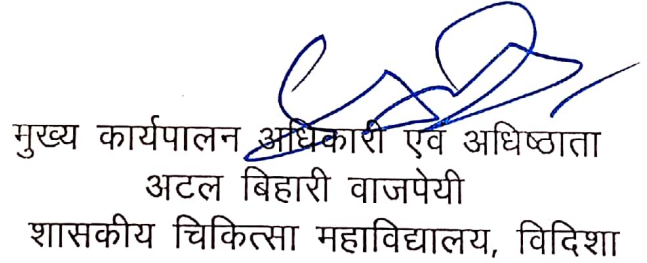 मुख्य कार्यपालन अधिकारी एवं अधिष्ठाता
अटल बिहारी वाजपेयी
शासकीय चिकित्सा महाविद्यालय, विदिशा